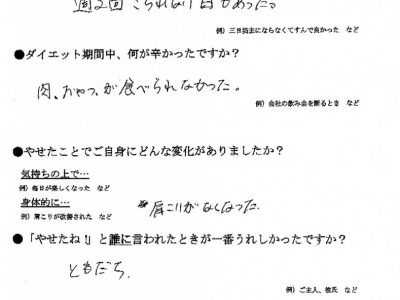 週2回 こられない日があった。
例）三日坊主にならなくてすんで良かった　など
●ダイエット期間中、何が辛かったですか？
肉、おやつ、が食べられなかった。
例）会社の飲み会を断るとき　など
●やせたことでご自身にどんな変化がありましたか？
気持ちの上で…
例）毎日が楽しくなった　など
身体的に…
肩こりがなくなった。
例）肩こりが改善された　など
●「やせたね！」と誰に言われたときが一番うれしかったですか？
ともだち
例）ご主人、彼氏　など